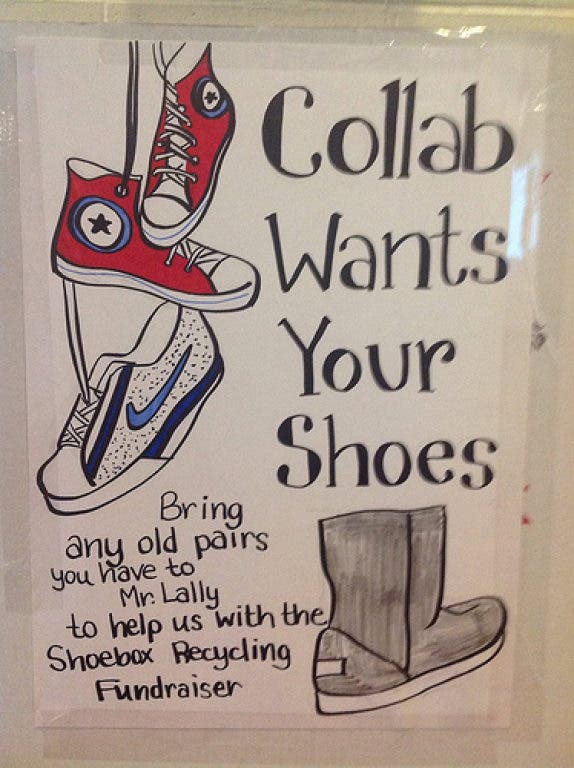 Collab
Wants
Your
Shoes
Bring
any old pairs
you have to
Mr. Lally
to help us with the
Shoebox Recycling
Fundraiser